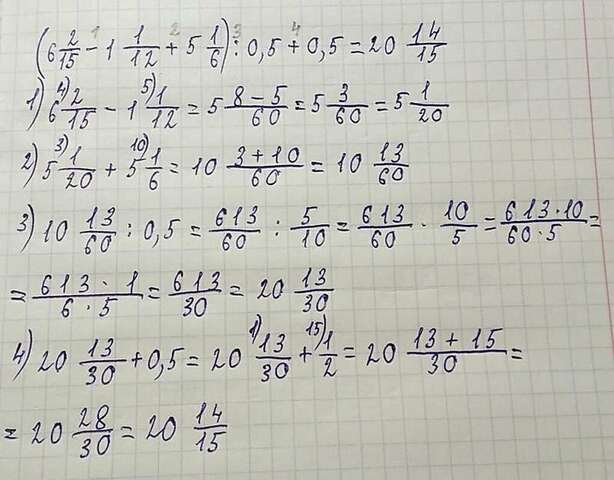 (6 2/15 - 1 1/12 + 5 1/6) : 0,5 + 0,5 = 20 14/15
1) 6 2/15 - 1 1/12 = 5 8-5/60 = 5 3/60 = 5 1/20
2) 5 1/20 + 5 1/6 = 10 3+10/60 = 10 13/60
3) 10 13/60 : 0,5 = 613/60 : 5/10 = 613/60 · 10/5 = 613·10/60·5 =
= 613·1/6·5 = 613/30 = 20 13/30
4) 20 13/30 + 0,5 = 20 13/30 + 1/2 = 20 13+15/30 =
= 20 28/30 = 20 14/15